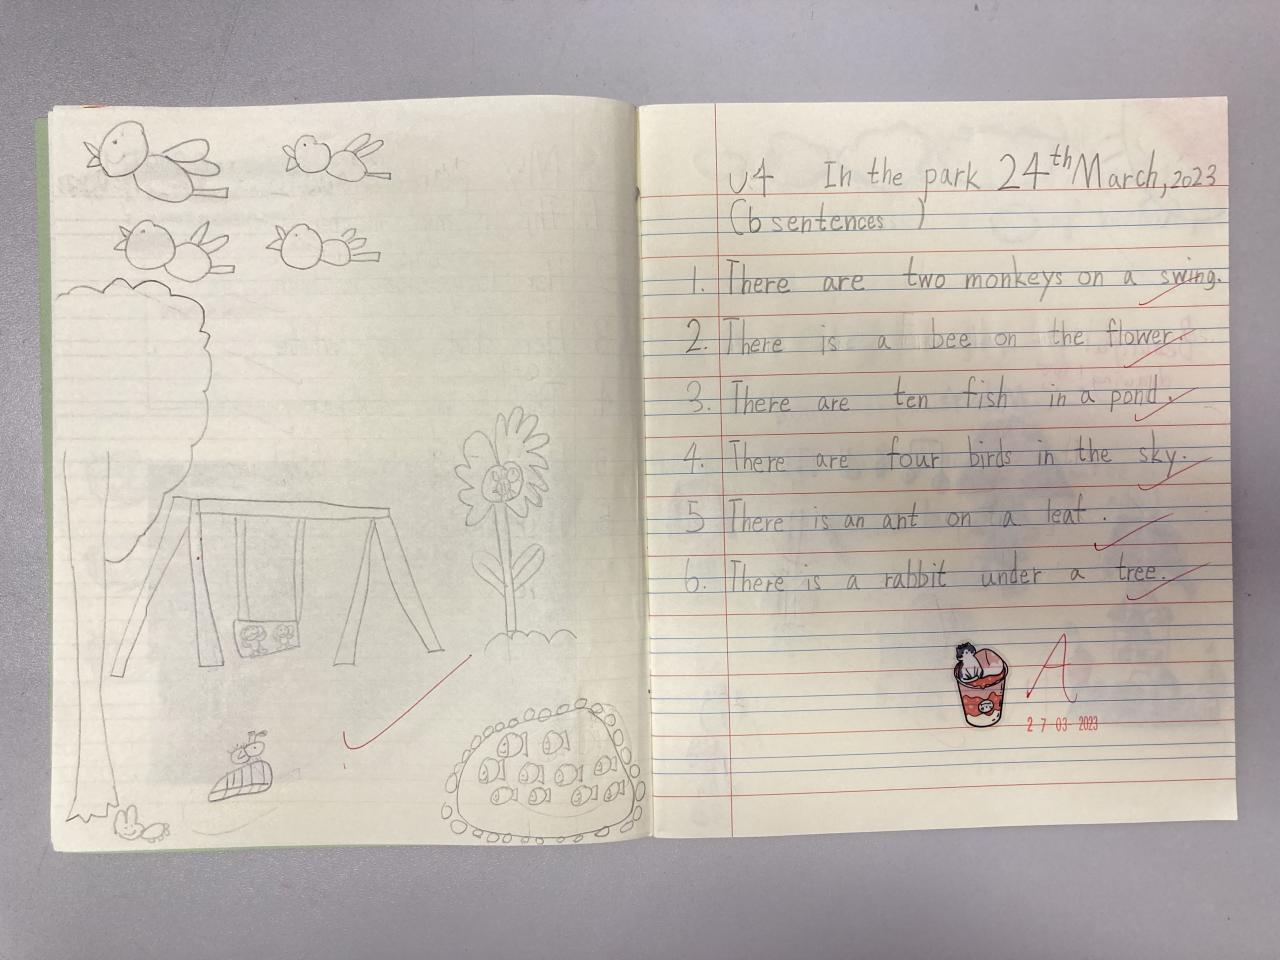 U4 In the park 24th March, 2023
(6 sentences )
1. There are two monkeys on a swing.
2. There is a bee on the flower.
3. There are ten fish in a pond.
4. There are four birds in the sky.
5 There is an ant on a leaf.
6. There is a rabbit under a tree.
A
27 03 2023